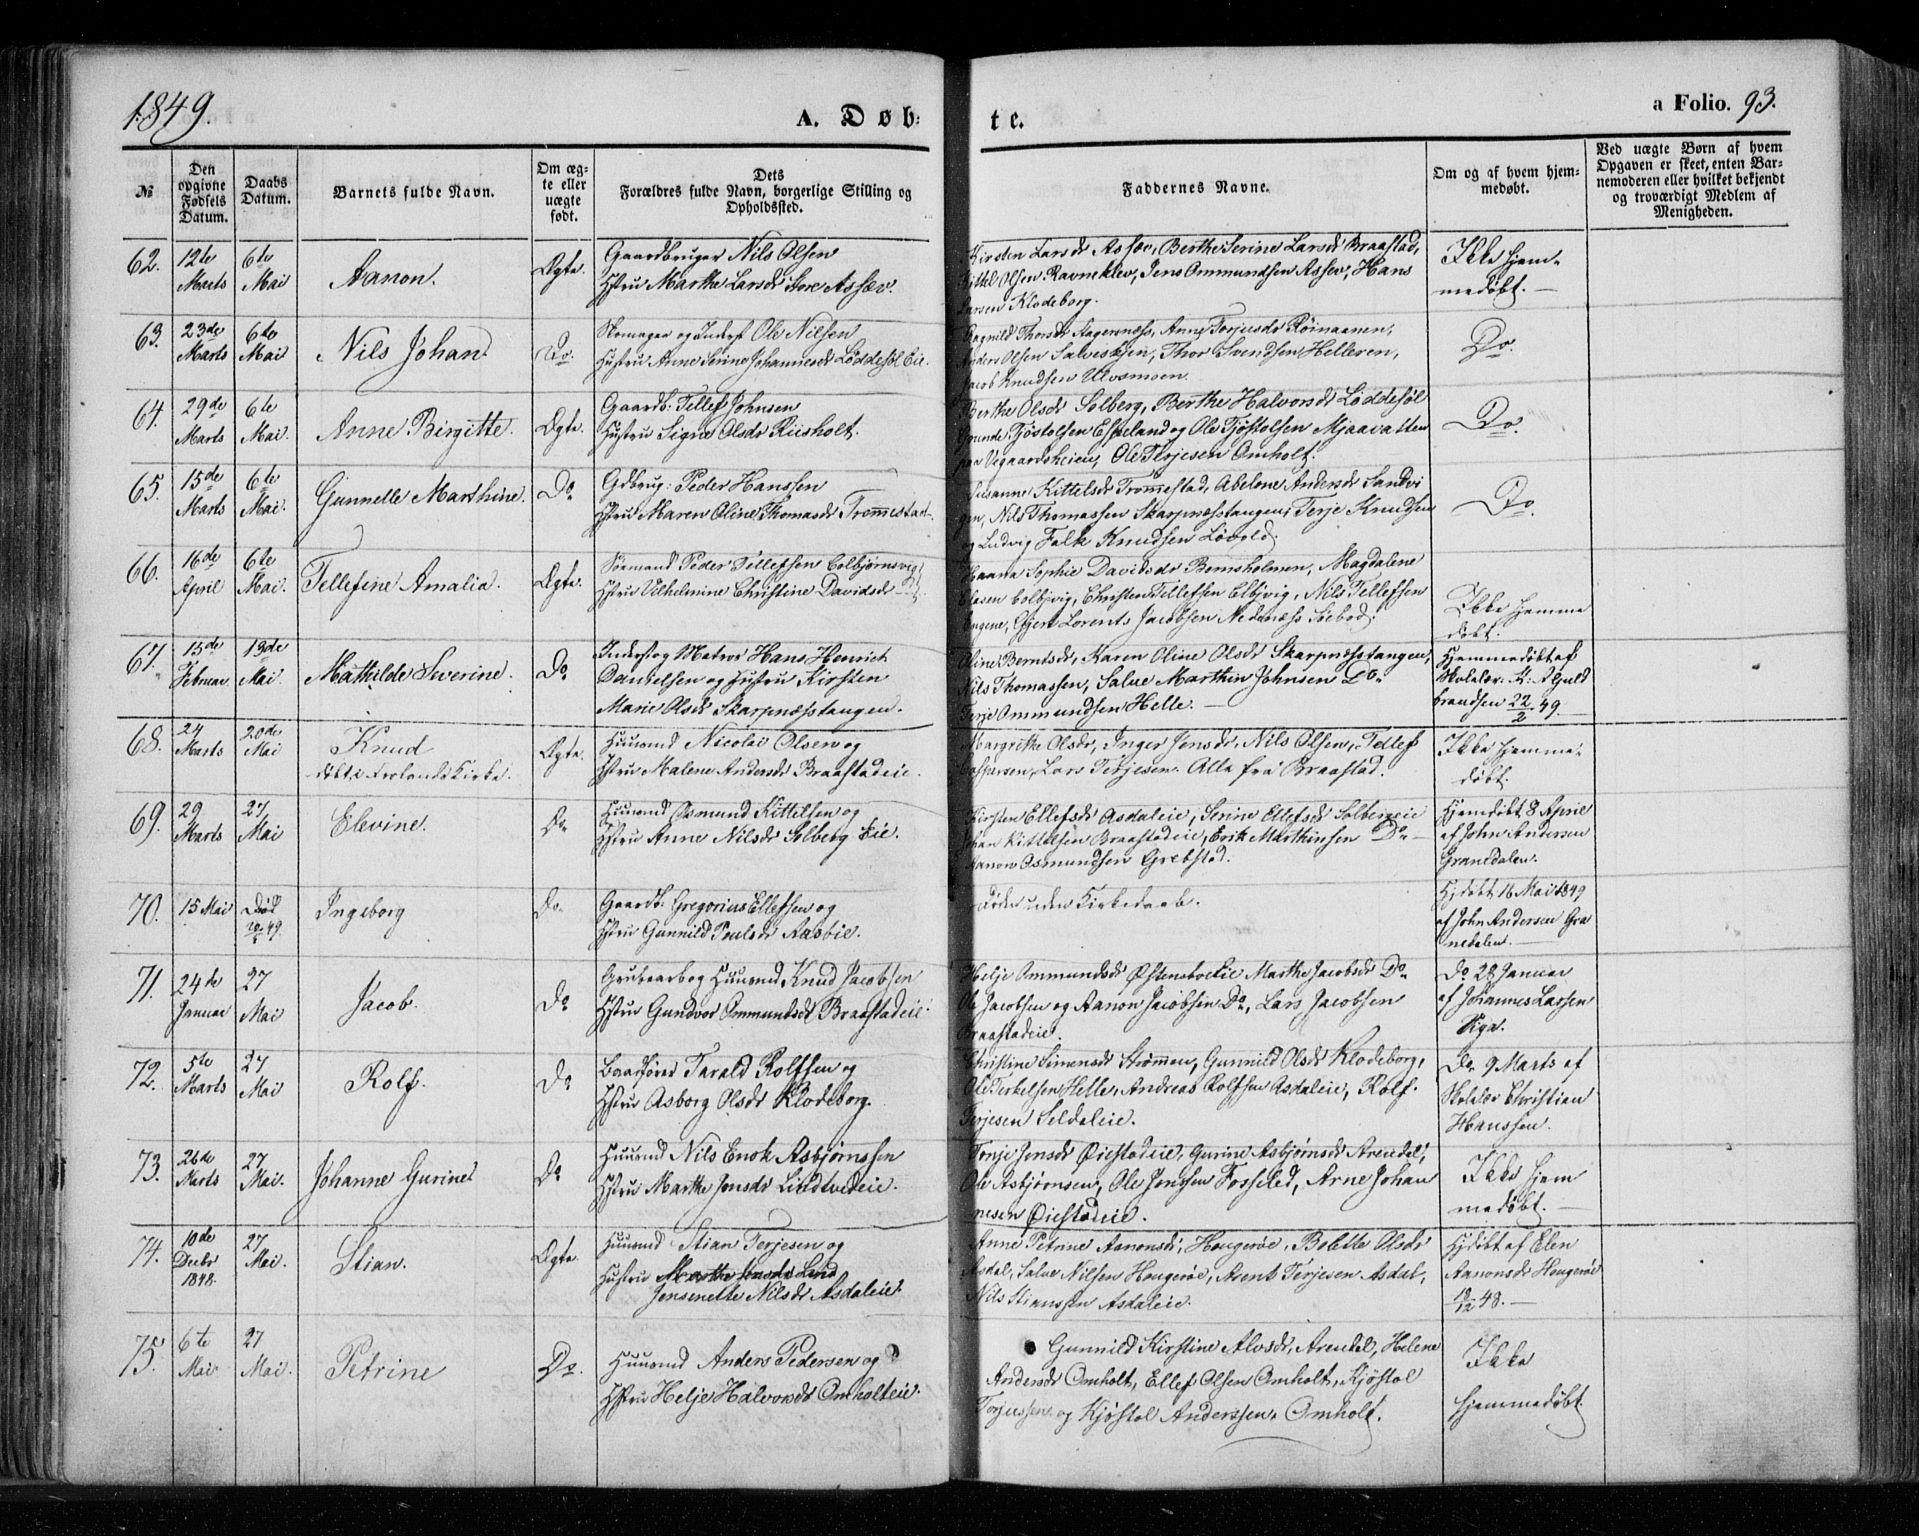 1849.
A. Døb-
te.
a Folio. 93.
№
Den opgivne Fødsels Datum.
Daabs Datum.
Barnets fulde Navn.
Om ægte eller uægte født.
Dets Forældres fulde Navn, borgerlige Stilling og Opholdssted.
Faddernes Navne.
Om og af hvem hjemmedøbt.
Ved uægte Børn af hvem Opgaven er skeet, enten Barnemoderen eller hvilket bekjendt og troværdigt Medlem af Menigheden.
62. 12te Marts 6te Mai Aanon. Ægte.
Gaardbruger Nils Olsen
Hstru Marthe Larsdr Assæv
Kirsten Larsdr Assæv, Berthe Serine Larsdr Braastad,
Kittel Olsen Ravneklev, Jens Ommundsen Assev, Hans
Larsen Klodeborg.
Ikke hjem-
medøbt. —
63. 23de Marts 6te Mai Nils Johan Do.
Skomager og Inderst Ole Nilsen
Hustru Anne Serine Johannesdr Løddesøl Eie.
Ragnild Thorsdr Anne Terjusdr Røinaanen,
Anders Olsen Salveskjen, Thor Svendsen Helleren,
Jacob Knudsen Ulvsmoen.
Do.
64. 29de Marts 6te Mai. Anne Birgitte. Ægte.
Gaardb: Tellef Johnsen
Hustru Signe Olsdr Riisholt.
Berthe Olsdr Solberg, Berthe Halvorsdr Løddesøl
Grunde Tjøstolsen Espeland og Ole Tjøstolsen Mjaavatten
paa Vegaardsheien, Ole Terjesen Omholt.
Do.
65. 15de Marts 6te Mai. Gunnelle Marthine. Do
Gdbrug: Peder Hanssen
Hstru Maren Oline Thomasdr Trommestad.
Susanne Kittelsdr Trommestad, Abelone Andersdr Sandvi
gen, Nils Thomassen Skarpnæsstangen, Terje Knudsen
og Ludvig Falk Knudsen Løvold.
Do.
66. 16de April 6te Mai. Tellefine Amalia. Ægte.
Sømand Peder Tellefsen Colbjørnsvig
Hstru Vilhelmine Christine Davidsdr
Haana Sophie Davidsdr Bomsholmen, Magdalene
Olasen Colbjvig, Christen Tellefsen Clbjvig, Nils Tellefsen
Engene, Gjert Lorents Jacobsen Nedenæss Søebod.
Ikke hjemme
døbt.
67. 15de Februar 13de Mai. Mathilde Swerine. Do
Inderst og Matros Hans Henrich
Danielsen og Hustru Kirsten
Marie Olsdr Skarpnæsstangen.
Oline Berntsdr, Karen Oline Olsdr Skarpnæsstangen,
Nils Thomassen, Salve Marthin Johnsen Do.
Terje Ommundsen Helle. —
Hjemmedøbt af
Skolelær: A: A Guld
brandsen 22/2 49.
68. 24 Marts 20de Mai Knud
døbt i Froland Kirke. Ægte.
Huusmd Nicolai Olsen og
Hstru Malene Andersdr Braastadeie.
Margrithe Olsdr, Inger Jensdr, Nils Olsen, Tellef
Caspersen, Lars Terjesen. Alle fra Braastad.
Ikke hjemme-
døbt.
69. 29 Marts 27 Mai Elevine. Do
Huusmd Osmund Kittilsen og
Hstru Anne Nilsdr Solberg Eie.
Kirsten Ellefsdr Asdaleie, Serine Ellefsdr Solbergeie
Johan Kittelsen Braastadeie, Erik Marthinsen Do —
Aanon Osmundsen Grebstad.
Hjemdøbt 8 April
af John Andersen
Granedalen.
70. 15 Mai Død 20/5 49. Ingeborg Do.
Gaardb: Gregorius Ellefsen og
Hstru Gunnild Poulsdr Aasbie.
Døde uden Kirkedaab.
Hjdøbt 16 Mai 1849
af John Andersen Gra
nedalen.
71. 24de Januar 27 Mai Jacob. Do
Grubearb og Huusmd Knud Jacobsen
Hstru Gundvor Ommundsdr Braastadeie.
Helje Ommundsdr Østensboeie Marthe Jacobsdr Do
Ole Jacobsen og Aanon Jacobsen Do, Lars Jacobsen
Braastadeie.
Do 28 Januar
af Johannes Larsen
Riga.
72. 5te Marts 27 Mai Rolf. Do
Baadfører Tarald Rolfsen og
Hstru Asborg Olsdr Klodeborg.
Christine Simensdr Strømmen, Gunnild Olsdr Klodeborg,
Ole Terkelsen Helle, Andreas Rolfsen Asdaleie, Rolf
Terjesen Seldaleie.
Do 9 Marts af
Skolelær Christian
Hanssen.
73. 26de Marts 27 Mai. Johanne Gurine Do
Huusmd Nils Enok Asbjørnssen
Hstru Marthe Jensdr Lindtvedeie.
Tonje Jensdr Øiestadeie, Gurine Asbjørnsdr Arendal,
Ole Asbjørnsen, Ole Jenssen Fosseled, Arne Johan
nesen Øiestadeie.
Ikke hjem
medøbt. —
74. 10de Decbr 1848. 27 Mai. Stian. Ægte
Huusmd Stian Terjesen og
Hustru Marthe Jensdr Lind
Jensenette Nilsdr Asdaleie.
Anne Petrine Aanonsdr, Hougerøe, Bolette Olsdr
Asdal, Salve Nilsen Hougerøe, Arent Terjesen Asdal,
Nils Stianssen Asdaleie.
Hjdøbt af Elen
Aanonsdr Hougerøe
19/12 48. —
75. 6te Mai 27 Mai. Petrine Do.
Huusmd Anders Pedersen og
Hstru Helje Halvorsdr Omholteie.
Gunnild Kirstine Alvsdr, Arendal, Helene
Andersdr Omholt, Ellef Olsen Omholt, Kjøstol
Terjussen og Kjøstol Anderssen, Omholt.
Ikke
hjemmedøbt.